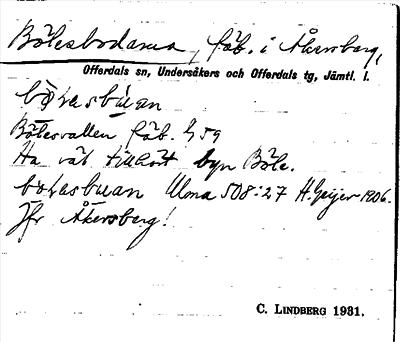 Bölesbodarna, fäb. i Åkersberg,
Offerdals sn, Undersåkers och Offerdals tg, Jämtl. l.
Bölesvallen fäb. G 59
Ha väl tillhört byn Böle.
Ulma 508:27 H. Geijer 1906.
Jfr Åkersberg!
C. LINDBERG 1931.